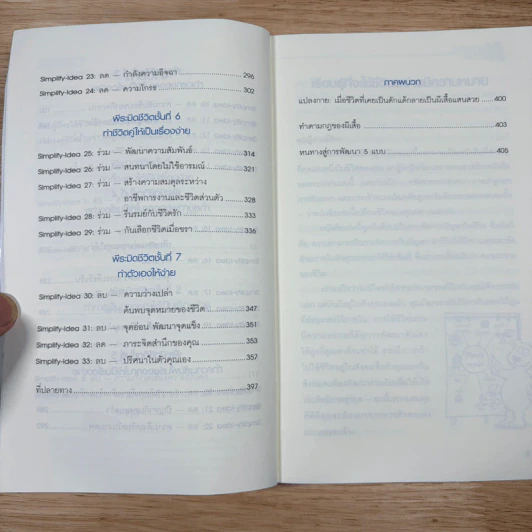 Simplify-Idea 23: ลด — กำลังความอิจฉา ........................ 296
Simplify-Idea 24: ลด — ความโกรธ ........................ 302
พีระมิดชีวิตชั้นที่ 6
ทำชีวิตคู่ให้เป็นเรื่องง่าย
Simplify-Idea 25: ร่วม — พัฒนาความสัมพันธ์ ........................ 314
Simplify-Idea 26: ร่วม — สนทนาโดยไม่ใช้อารมณ์ ........................ 321
Simplify-Idea 27: ร่วม — สร้างความสมดุลระหว่าง
อาชีพการงานและชีวิตส่วนตัว ........ 328
Simplify-Idea 28: ร่วม — รื่นรมย์กับชีวิตรัก ........................ 333
Simplify-Idea 29: ร่วม — กันเลือกชีวิตเมื่อชรา ........................ 336
พีระมิดชีวิตชั้นที่ 7
ทำตัวเองให้ง่าย
Simplify-Idea 30: ลบ — ความว่างเปล่า
ค้นพบจุดหมายของชีวิต ........... 347
Simplify-Idea 31: ลบ — จุดอ่อน พัฒนาจุดแข็ง ........................ 351
Simplify-Idea 32: ลด — ภาระจิตสำนึกของคุณ ........................ 353
Simplify-Idea 33: ลบ — ปริศนาในตัวคุณเอง ........................ 357
ที่ปลายทาง ........................ 397
ภาคผนวก
แปลงกาย: เมื่อชีวิตที่เคยเป็นดักแด้กลายเป็นผีเสื้อแสนสวย ...... 400
ทำตามกฎของผีเสื้อ ........................ 403
หนทางสู่การพัฒนา 5 แบบ ........................ 405